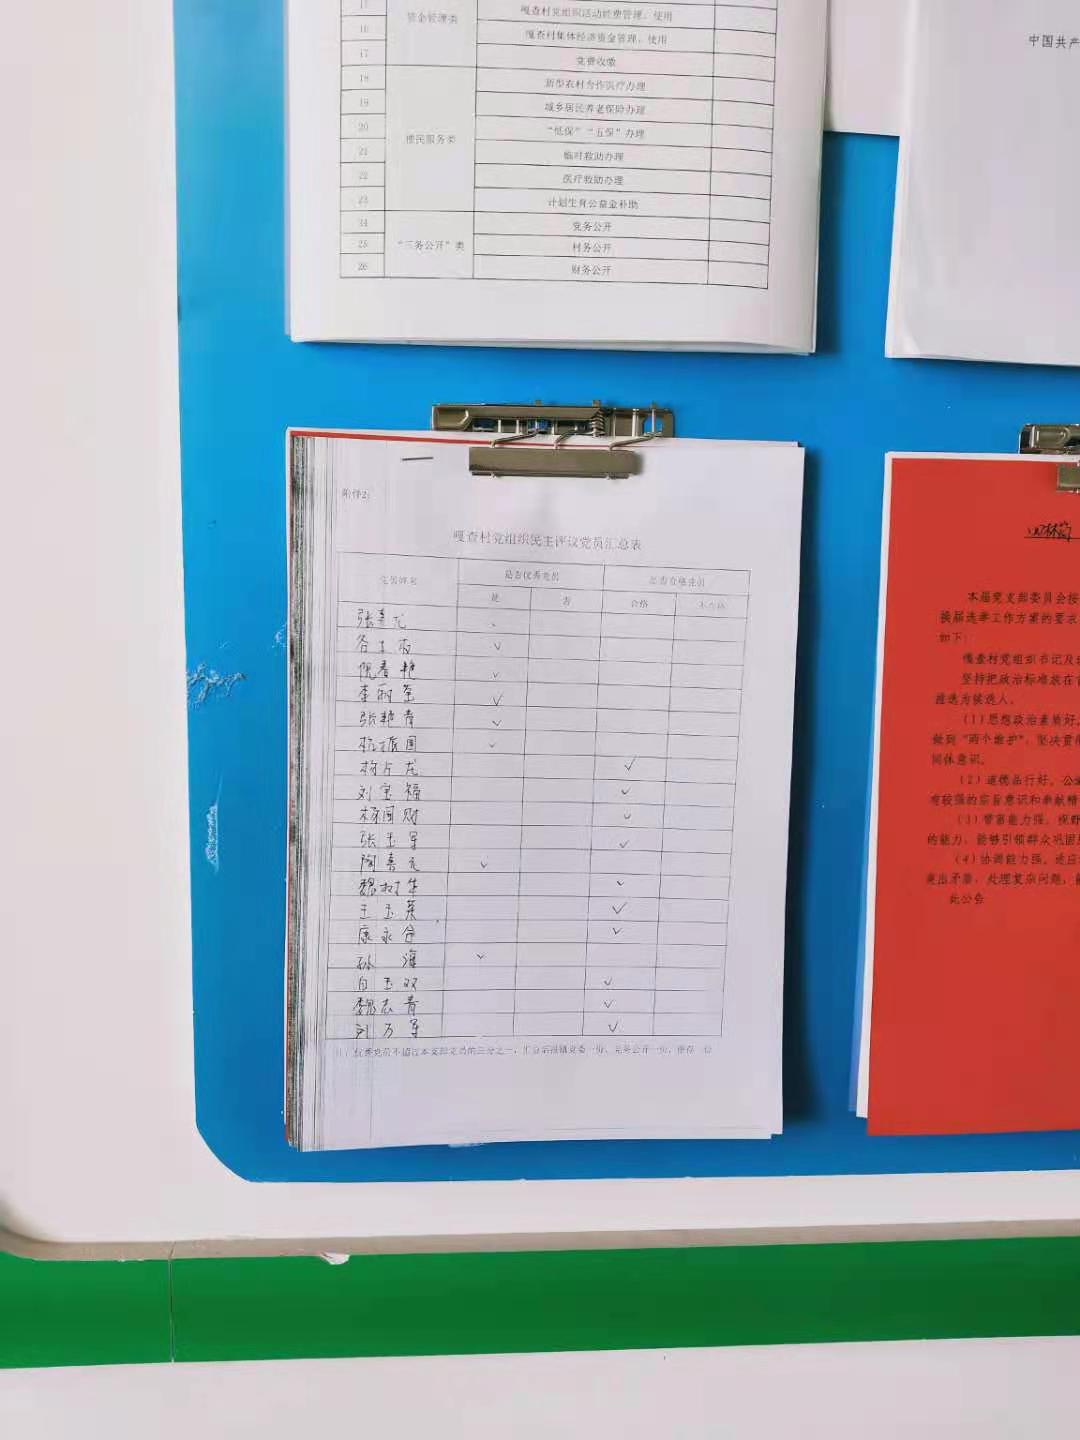 资金管理类
嘎查村党组织活动经费管理、使用
16 嘎查村集体经济资金管理、使用
17 党费收缴
便民服务类
18 新型农村合作医疗办理
19 城乡居民养老保险办理
20 “低保”“五保”办理
21 临时救助办理
22 医疗救助办理
23 计划生育公益金补助
“三务公开”类
24 党务公开
25 村务公开
26 财务公开
中国共产
附件2:
嘎查村党组织民主评议党员汇总表
党员姓名 是否优秀党员 是否合格党员
是 否 合格 不合格
张喜龙 ✓
李丽
张艳青 ✓
杭振国 ✓
龙 ✓
刘宝福 ✓
杨国财 ✓
张玉军 ✓
陶喜元 ✓
魏树华 ✓
王玉英 ✓
康永仓 ✓
孙海 ✓
白玉双 ✓
魏志青 ✓
刘万军 ✓
注：优秀党员不超过本支部党员的三分之一，汇总后报镇党委一份、党务公开一份、留存一份
本届党支部委员会按
换届选举工作方案的要求
如下：
嘎查村党组织书记及
坚持把政治标准放在首
推选为候选人。
（1）思想政治素质好。
做到“两个维护”，坚决贯
同体意识。
（2）道德品行好。公
有较强的宗旨意识和奉献精
（3）带富能力强。视野
的能力，能够引领群众巩固
（4）协调能力强。适应
突出矛盾，处理复杂问题，
此公告